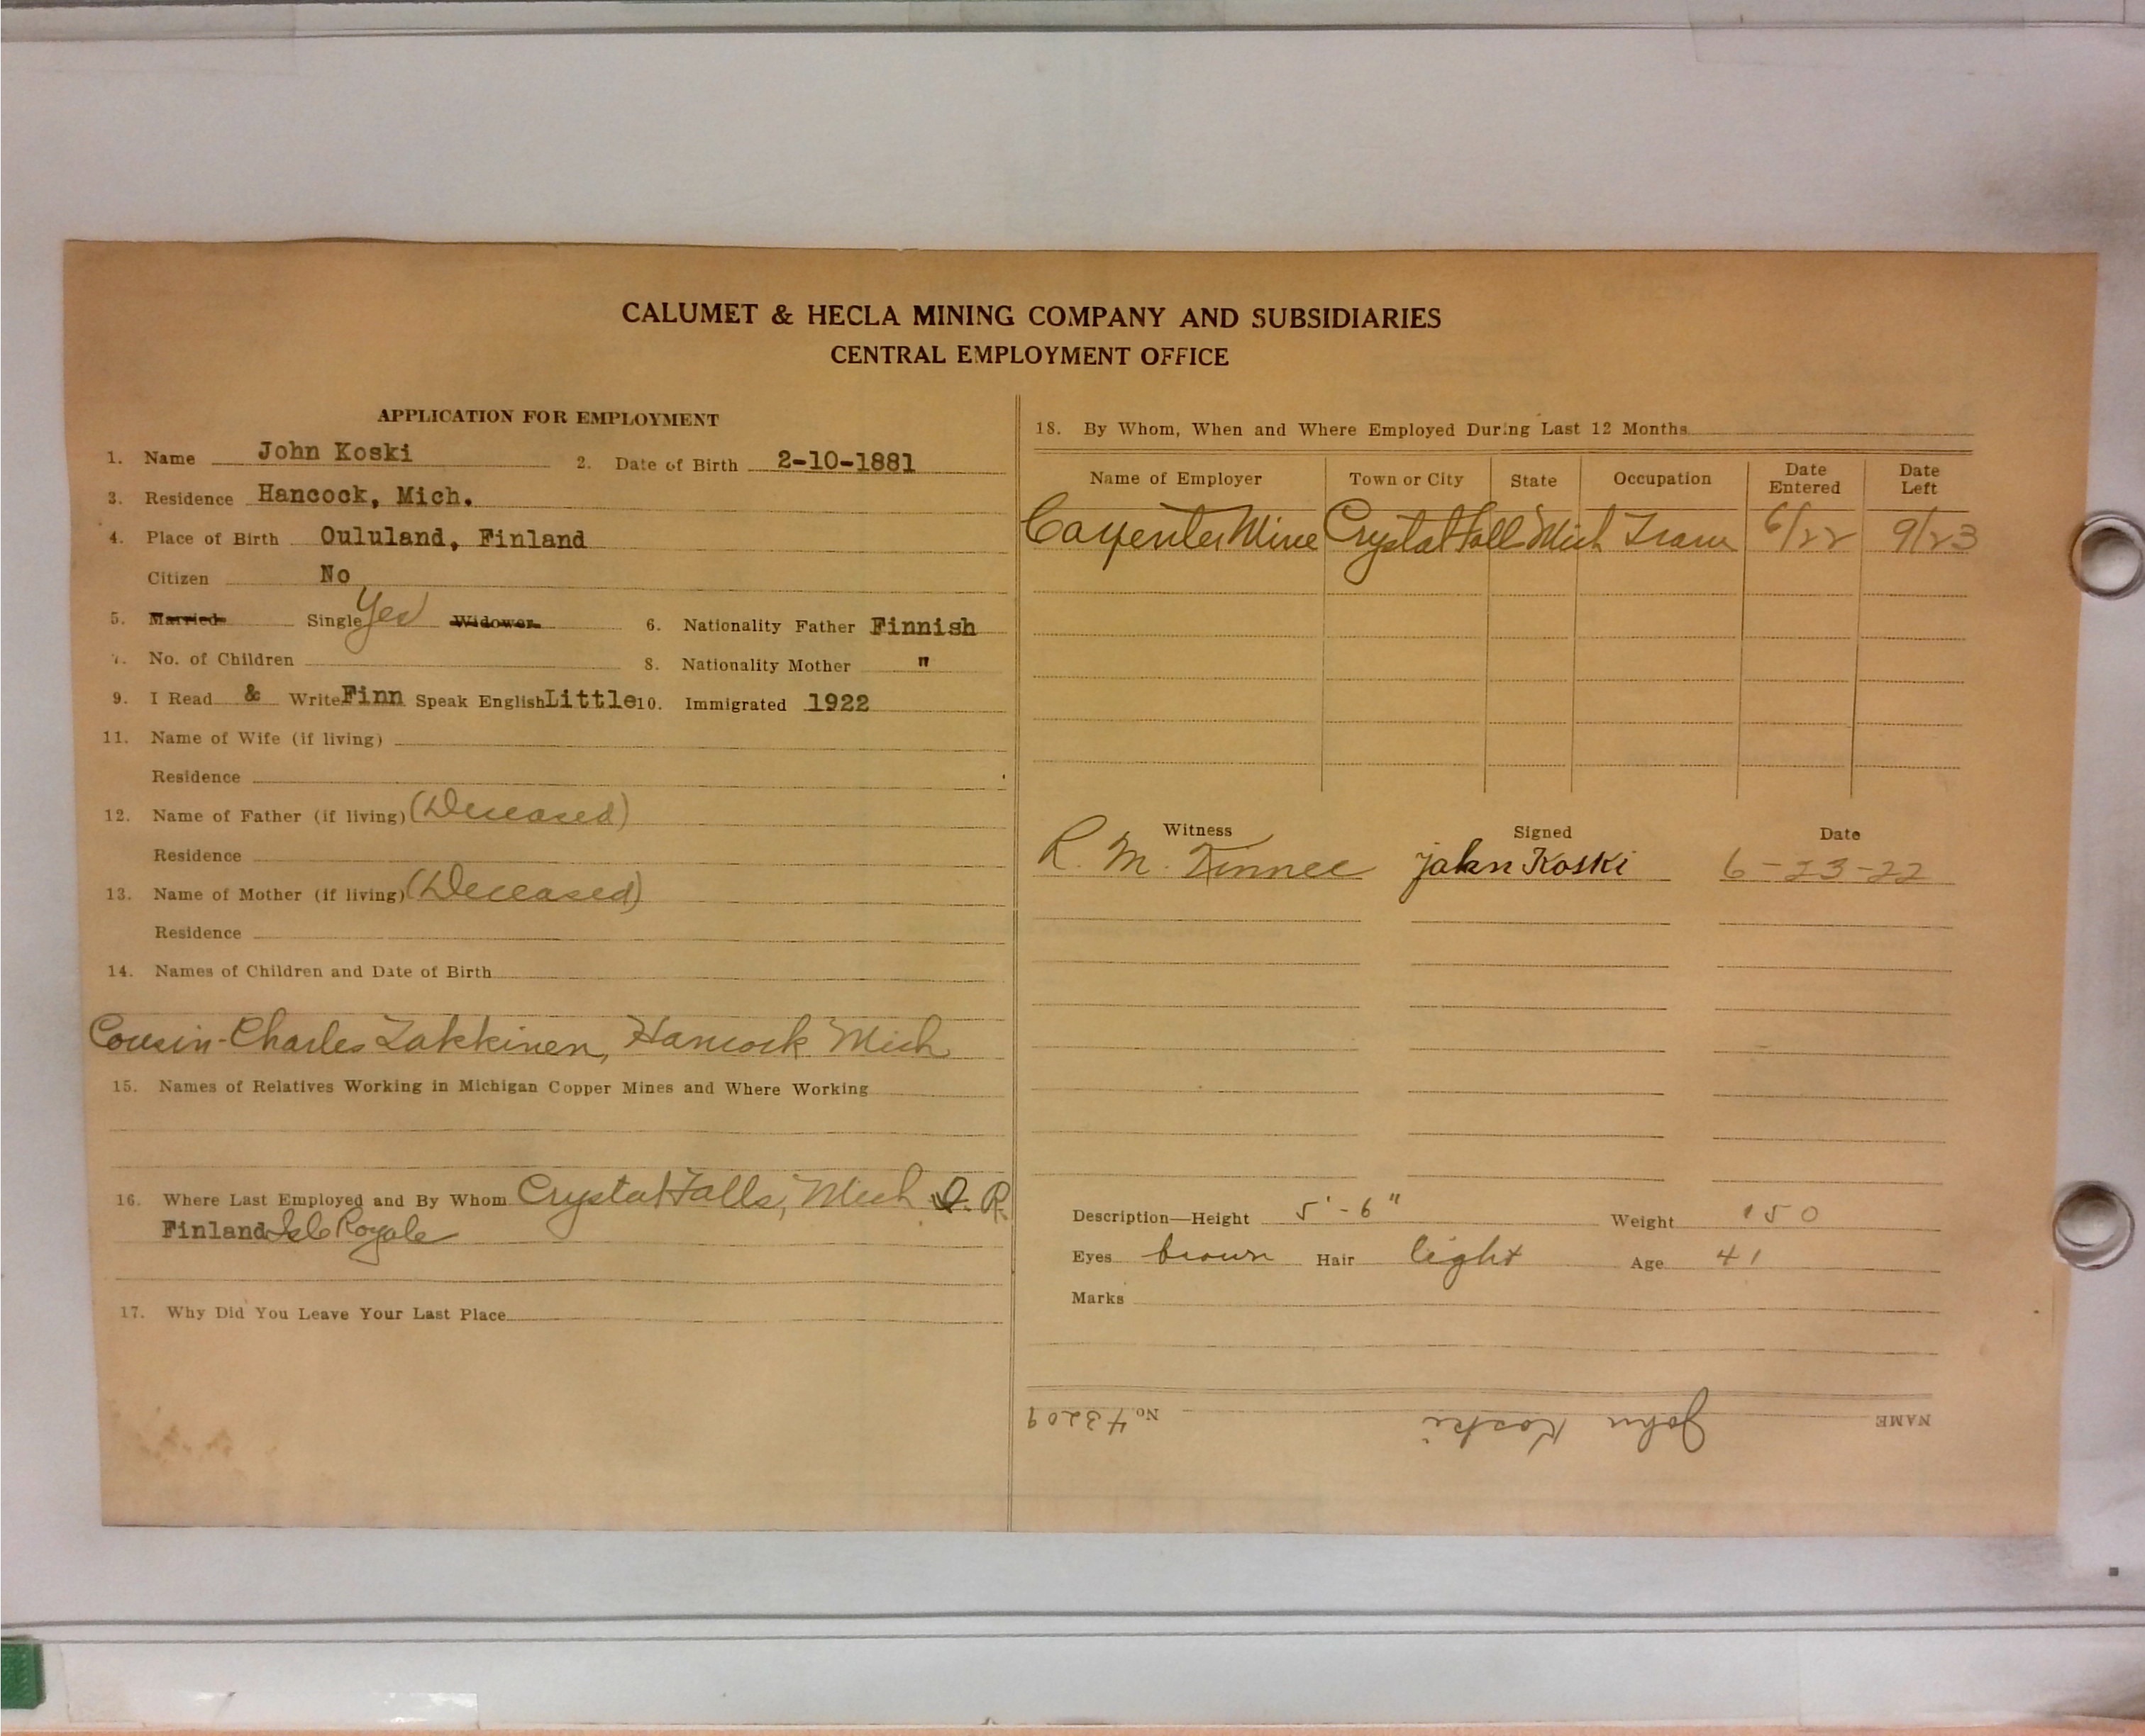 CALUMET & HECLA MINING COMPANY AND SUBSIDIARIES
CENTRAL EMPLOYMENT OFFICE
APPLICATION FOR EMPLOYMENT
1. Name John Koski 2. Date of Birth 2-10-1881
3. Residence Hancock, Mich.
4. Place of Birth Oululand, Finland
Citizen No
5. Married Single Yes Widower 6. Nationality Father Finnish
7. No. of Children 8. Nationality Mother "
9. I Read & Write Finn Speak English Little 10. Immigrated 1922
11. Name of Wife (if living)
Residence
12. Name of Father (if living) (Deceased)
Residence
13. Name of Mother (if living) (Deceased)
Residence
14. Names of Children and Date of Birth
Cousin-Charles Lakkinen, Hancock Mich
15. Names of Relatives Working in Michigan Copper Mines and Where Working
16. Where Last Employed and By Whom Crystal Falls, Mich I. R.
Finland Isle Royale
17. Why Did You Leave Your Last Place
18. By Whom, When and Where Employed During Last 12 Months
Name of Employer Town or City State Occupation Date Entered Date Left
Carpenter Mine Crystal Fall Mich Tram 6/22 9/23
Witness Signed Date
R. M. Kinnee John Koski 6-23-22
Description—Height 5'-6" Weight 150
Eyes brown Hair light Age 41
Marks
NAME John Koski No. 43209